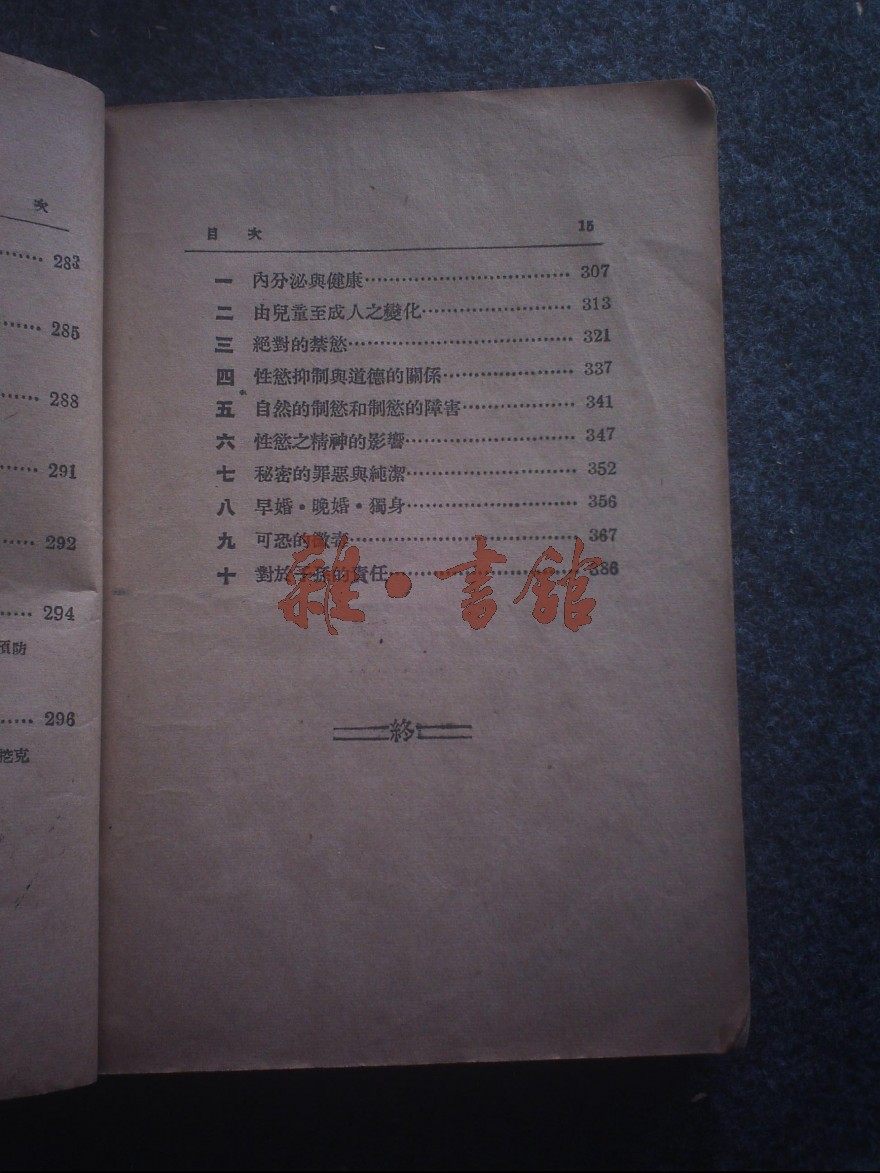 次
283
285
288
291
292
294
預防
296
挖克
目 次 15
一 內分泌與健康 307
二 由兒童至成人之變化 313
三 絕對的禁慾 321
四 性慾抑制與道德的關係 337
五 自然的制慾和制慾的障害 341
六 性慾之精神的影響 347
七 秘密的罪惡與純潔 352
八 早婚・晚婚・獨身 356
九 可恐的黴毒 367
十 對於子孫的責任 386
雜・書館
終